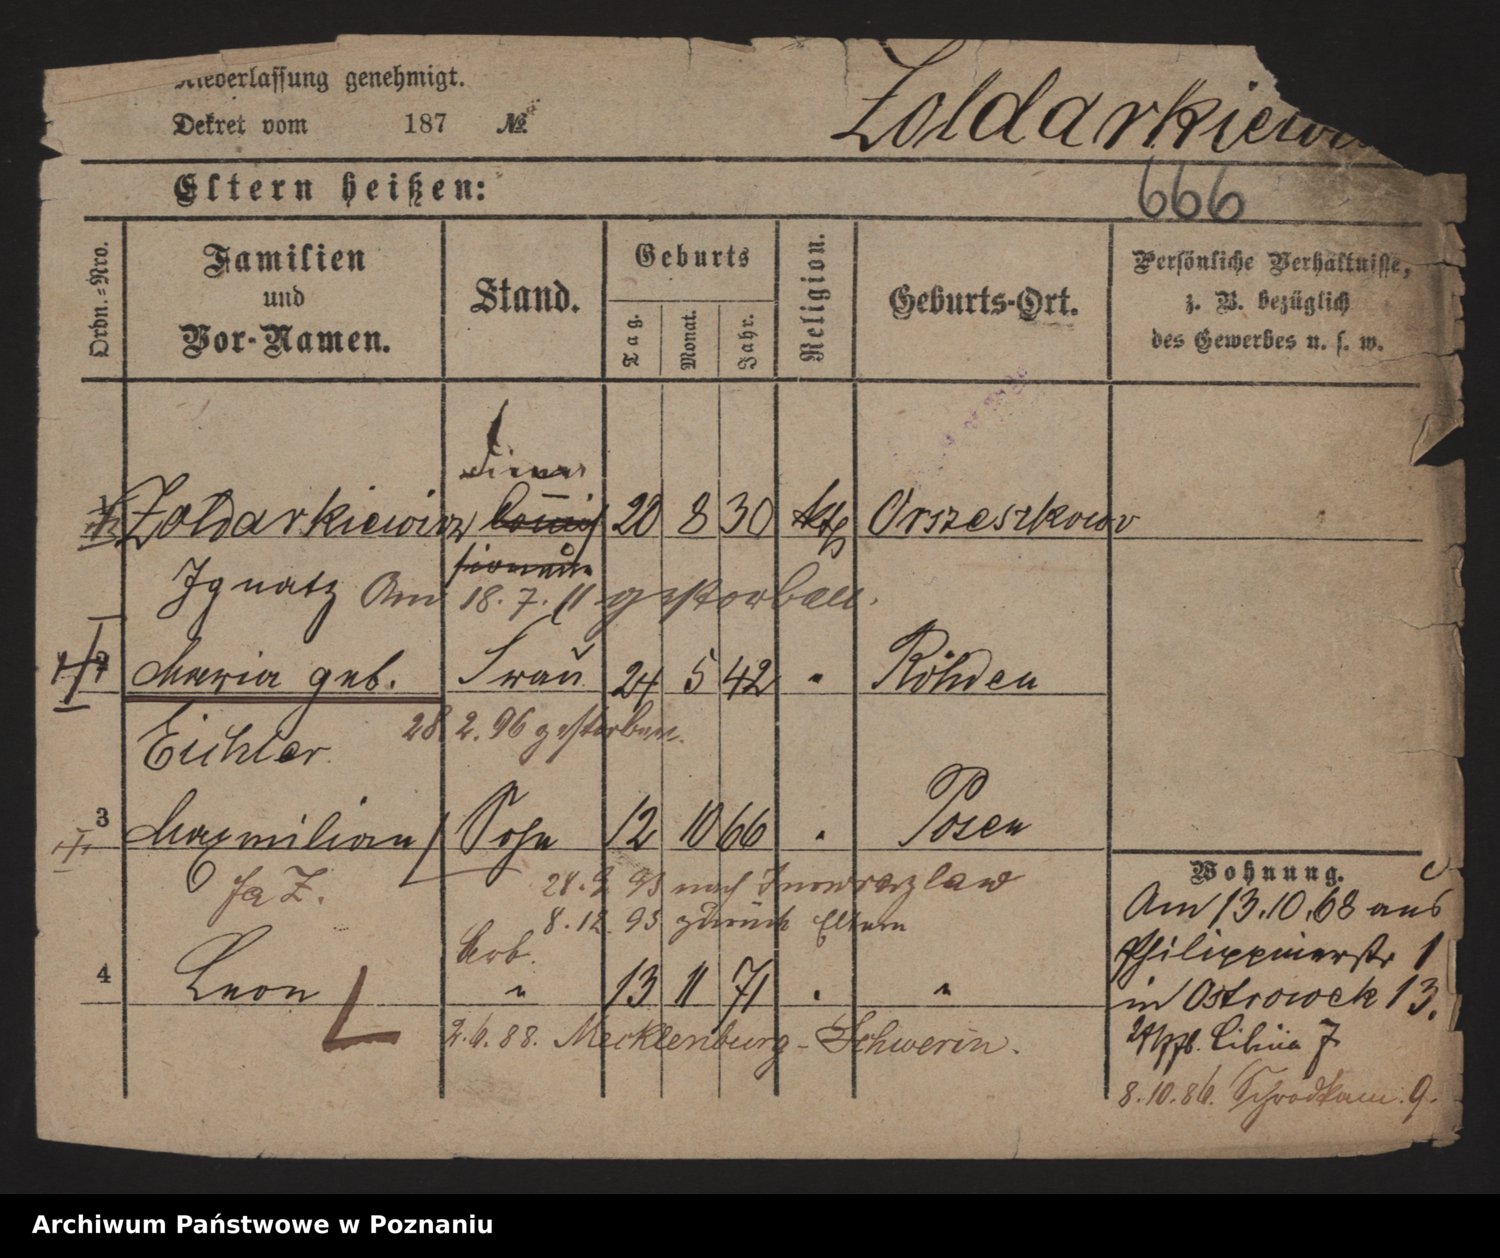 Niederlassung genehmigt.
Dekret vom 187 №
Zoldarkiewicz
Eltern heißen:
666
Ordn.-Nro.
Familien
und
Vor-Namen.
Stand.
Geburts
Tag.
Monat.
Jahr.
Religion.
Geburts-Ort.
Persönliche Verhältnisse,
z. B. bezüglich
des Gewerbes u. s. w.
Diener
1 Zoldarkiewicz 20 8 30 kth Orszeszkowo
Ignatz Am 18. 7. 11 gestorben.
2 Maria geb. Frau 24 5 42 " Röhden
Eichler 28 2. 96 gestorben.
3 Maxmilian Sohn 12 10 66 " Posen
28. 9 93 nach Inowrazlaw
8. 12. 93 zurück Eltern
Arb.
4 Leon " 13 11 71 " "
2. 6. 88. Mecklenburg-Schwerin.
Wohnung.
Am 13. 10. 68 aus
Philippinerstr 1
in Ostrowek 13.
7
8. 10. 86. 9.
Archiwum Państwowe w Poznaniu